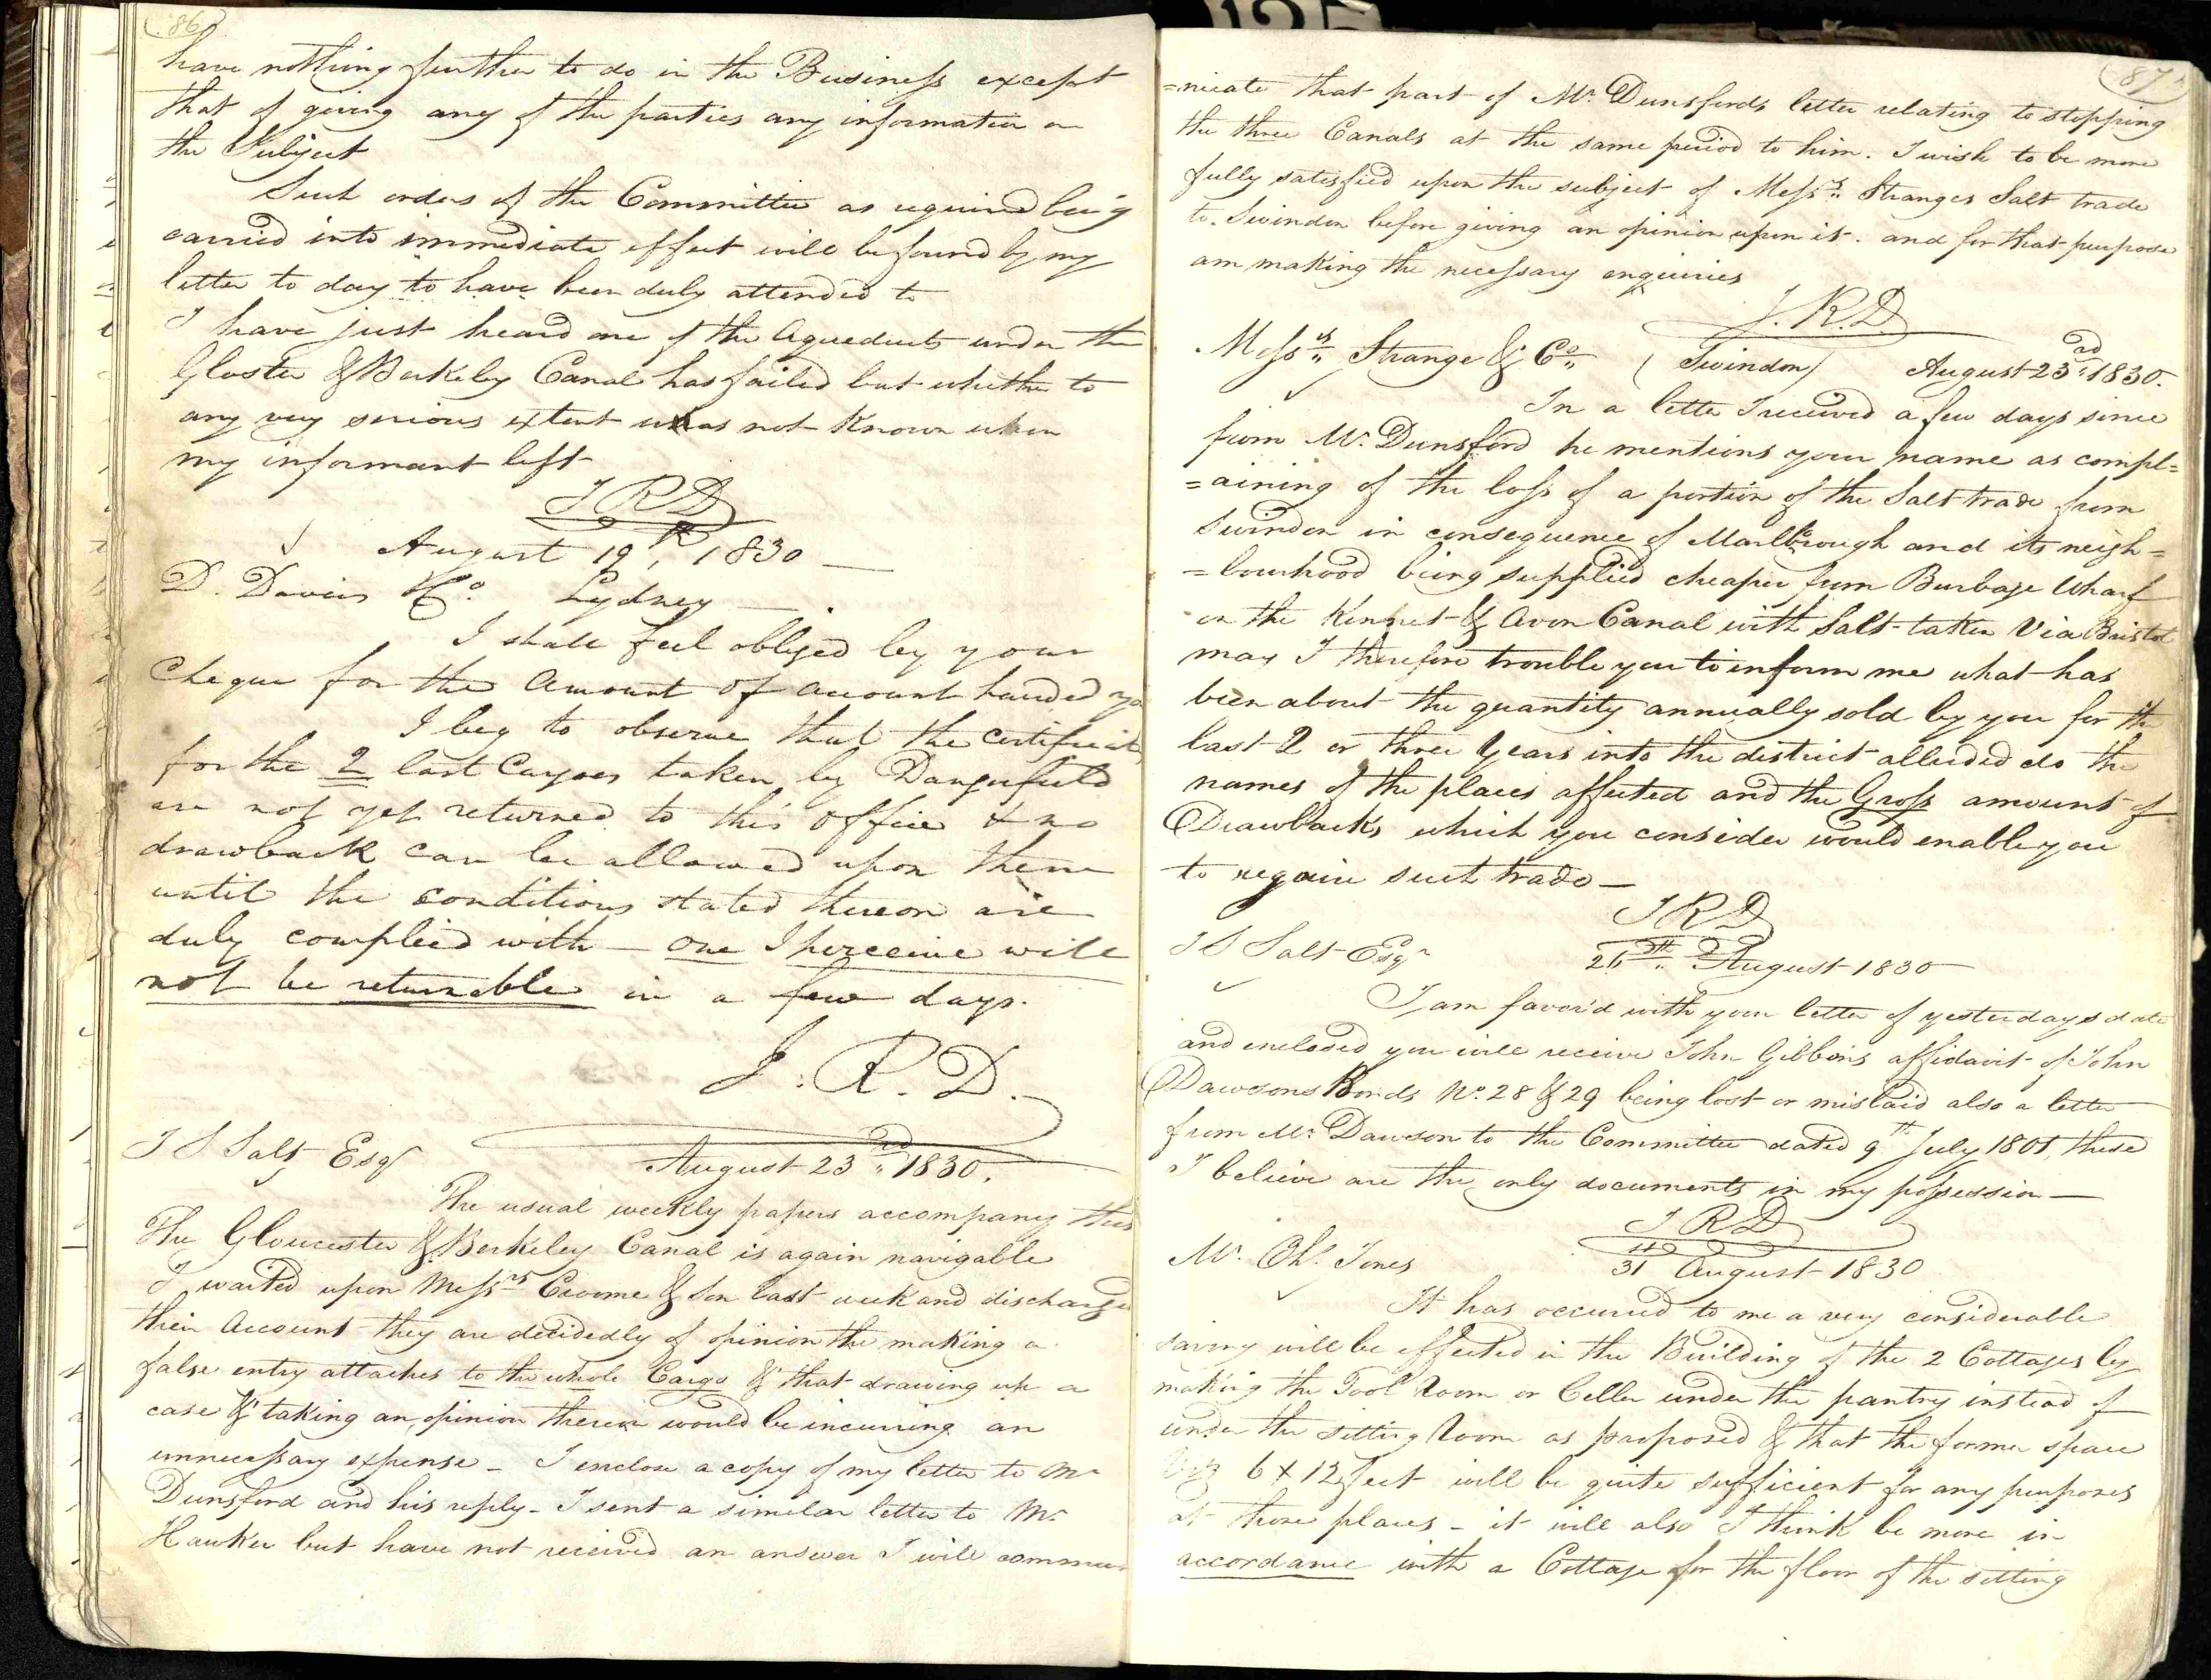 86
have nothing further to do in the Business except
that of giving any of the parties any information on
the Subject
Such orders of the Committee as required being
carried into immediate effect will be found by my
letter to day to have been duly attended to
I have just heard one of the Aqueducts under the
Gloster & Berkeley Canal has failed but whether to
any very serious extent was not known when
my informant left
J R D
August 19th, 1830
D. Davies & Co. Lydney
I shall feel obliged by your
Cheque for the Amount of account handed yo
I beg to observe that the Certificate
for the 2 last Cargoes taken by Dangerfield
are not yet returned to this office & no
drawback can be allowed upon them
until the conditions stated thereon are
duly complied with – one I perceive will
not be returnable in a few days.
J. R. D.
J S Salt Esqr
August 23rd 1830.
The usual weekly papers accompany this
The Gloucester & Berkeley Canal is again navigable
I waited upon Messrs Croome & Son last week and discharged
their Account they are decidedly of opinion the making a
false entry attaches to the whole Cargo & that drawing up a
case & taking an opinion therein would be incurring an
unnecessary expense – I enclose a copy of my letter to Mr
Dunsford and his reply – I sent a similar letter to Mr
Hawker but have not received an answer I will commu
87
=nicate that part of Mr. Dunsfords letter relating to stopping
the three Canals at the same period to him. I wish to be more
fully satisfied upon the subject of Messrs. Stranges Salt trade
to Swindon before giving an opinion upon it. and for that purpose
am making the necessary enquiries
J. R. D
Messrs. Strange & Co. (Swindon) August 23rd 1830.
In a letter I received a few days since
from Mr. Dunsford he mentions your name as compl=
=aining of the loss of a portion of the Salt trade from
Swindon in consequence of Marlbrough and its neigh=
=bourhood being supplied cheaper from Burbage Wharf
on the Kennet & Avon Canal with Salt taken Via Bristol
may I therefore trouble you to inform me what has
been about the quantity annually sold by you for the
last 2 or three Years into the district alluded do the
names of the places affected and the Gross amount of
Drawbacks which you consider would enable you
to regain such trade –
J R D
J S Salt Esqr
August 1830
I am favor'd with your letter of yesterdays date
and enclosed you will receive John Gibbons affidavit of John
Dawsons Bonds No. 28 & 29 being lost or mislaid also a letter
from Mr. Dawson to the Committee dated 9th July 1801, these
I believe are the only documents in my possession –
J R D
Mr. Chs. Jones
31st August 1830
It has occured to me a very considerable
saving will be effected in the Building of the 2 Cottages by
making the Tool Room or Celler under the pantry instead of
under the sitting Room as proposed & that the former space
6 x 12 feet will be quite sufficient for any purposes
at those places – it will also I think be more in
accordance with a Cottage for the floor of the sitting